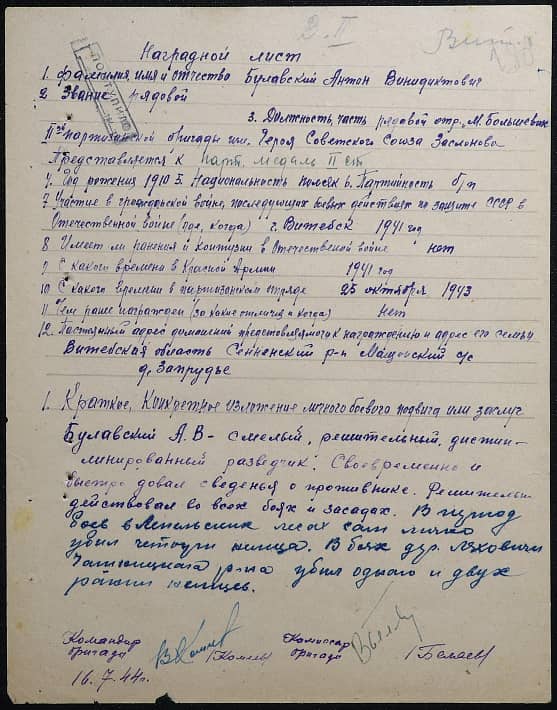 2-II
ПОСТУПИЛО
Наградной лист
1. Фамилия, имя и отчество Булавский Антон Винидиктович
2 Звание рядовой
3. Должность, часть рядовой отр. М. Большевик
II ой партизанской бригады им. Героя Советского Союза Заслонова
Представляется к парт. медаль II ст
4. Год рожения 1910 5. Национальность поляк 6. Партийность б/п
7 Участие в гражданской войне, последующих боевых действиях по защите СССР в
Отечественной войне (где, когда) г. Витебск 1941 год
8 Имеет ли ранения и контузии в Отечественой войне нет
9 С какого времени в Красной Армии 1941 год
10 С какого времени в партизанском отряде 25 октября 1943
11 Чем ранее награжден (за какие отличия и когда) нет
12. Постоянный адрес домашний представляемого к награждению и адрес его семьи
Витебская область Сенненский р-н Мащонский с/с
д. Запрудье
1. Краткое, конкретное изложение личного боевого подвига или заслуг
Булавский А.В - смелый, решительный, дисцип-
линированный разведчик. Своевременно и
быстро довал сведенья о противнике. Решительно
действовал во всех боях и засадах. В период
боев в Лепельских лесах сам лично
убил четыри немца. В боях дер. Ляховичи
р-на убил одного и двух
ранил немцев.
Командир
бригады
Комиссар
бригады
/Беляев/
16.7.44г.